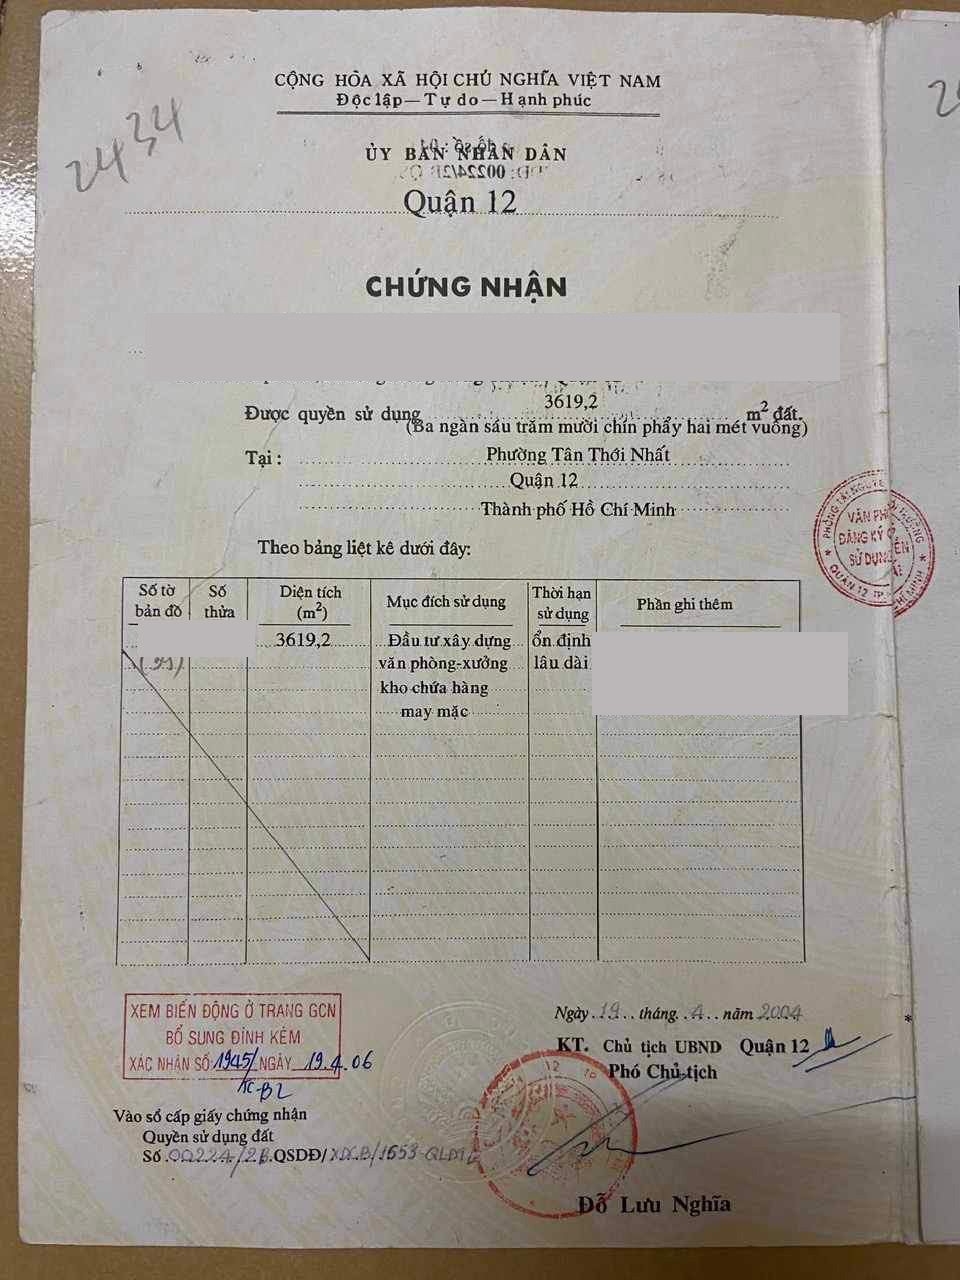 CỘNG HÒA XÃ HỘI CHỦ NGHĨA VIỆT NAM
Độc lập — Tự do — Hạnh phúc
2434
ỦY BAN NHÂN DÂN
Quận 12
CHỨNG NHẬN
3619,2
Được quyền sử dụng m2 đất.
(Ba ngàn sáu trăm mười chín phẩy hai mét vuông)
Tại : Phường Tân Thới Nhất
Quận 12
Thành phố Hồ Chí Minh
Theo bảng liệt kê dưới đây:
Số tờ bản đồ Số thửa Diện tích (m2) Mục đích sử dụng Thời hạn sử dụng Phần ghi thêm
3619,2 Đầu tư xây dựng ổn định
văn phòng-xưởng lâu dài
kho chứa hàng
may mặc
VĂN PH
ĐĂNG KÝ
SỬ DỤNG
QUẬN 12 TP
XEM BIẾN ĐỘNG Ở TRANG GCN
BỔ SUNG ĐÍNH KÈM
XÁC NHẬN SỐ 1945/ NGÀY 19.4.06
Ngày 19 tháng 4 năm 2004
KT. Chủ tịch UBND Quận 12
Phó Chủ tịch
Vào sổ cấp giấy chứng nhận
Quyền sử dụng đất
Số 00224/2B QSDĐ/
Đỗ Lưu Nghĩa